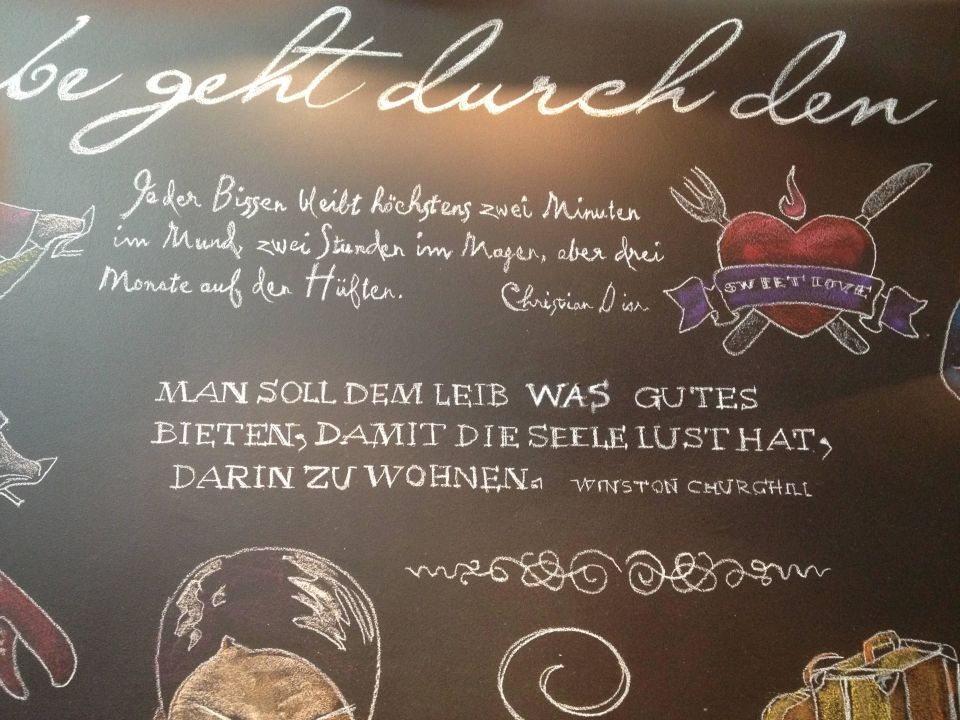 be geht durch den
Jeder Bissen bleibt höchstens zwei Minuten
im Mund, zwei Stunden im Magen, aber drei
Monate auf den Hüften. Christian Dior
SWEET LOVE
MAN SOLL DEM LEIB WAS GUTES
BIETEN, DAMIT DIE SEELE LUST HAT,
DARIN ZU WOHNEN. WINSTON CHURCHILL